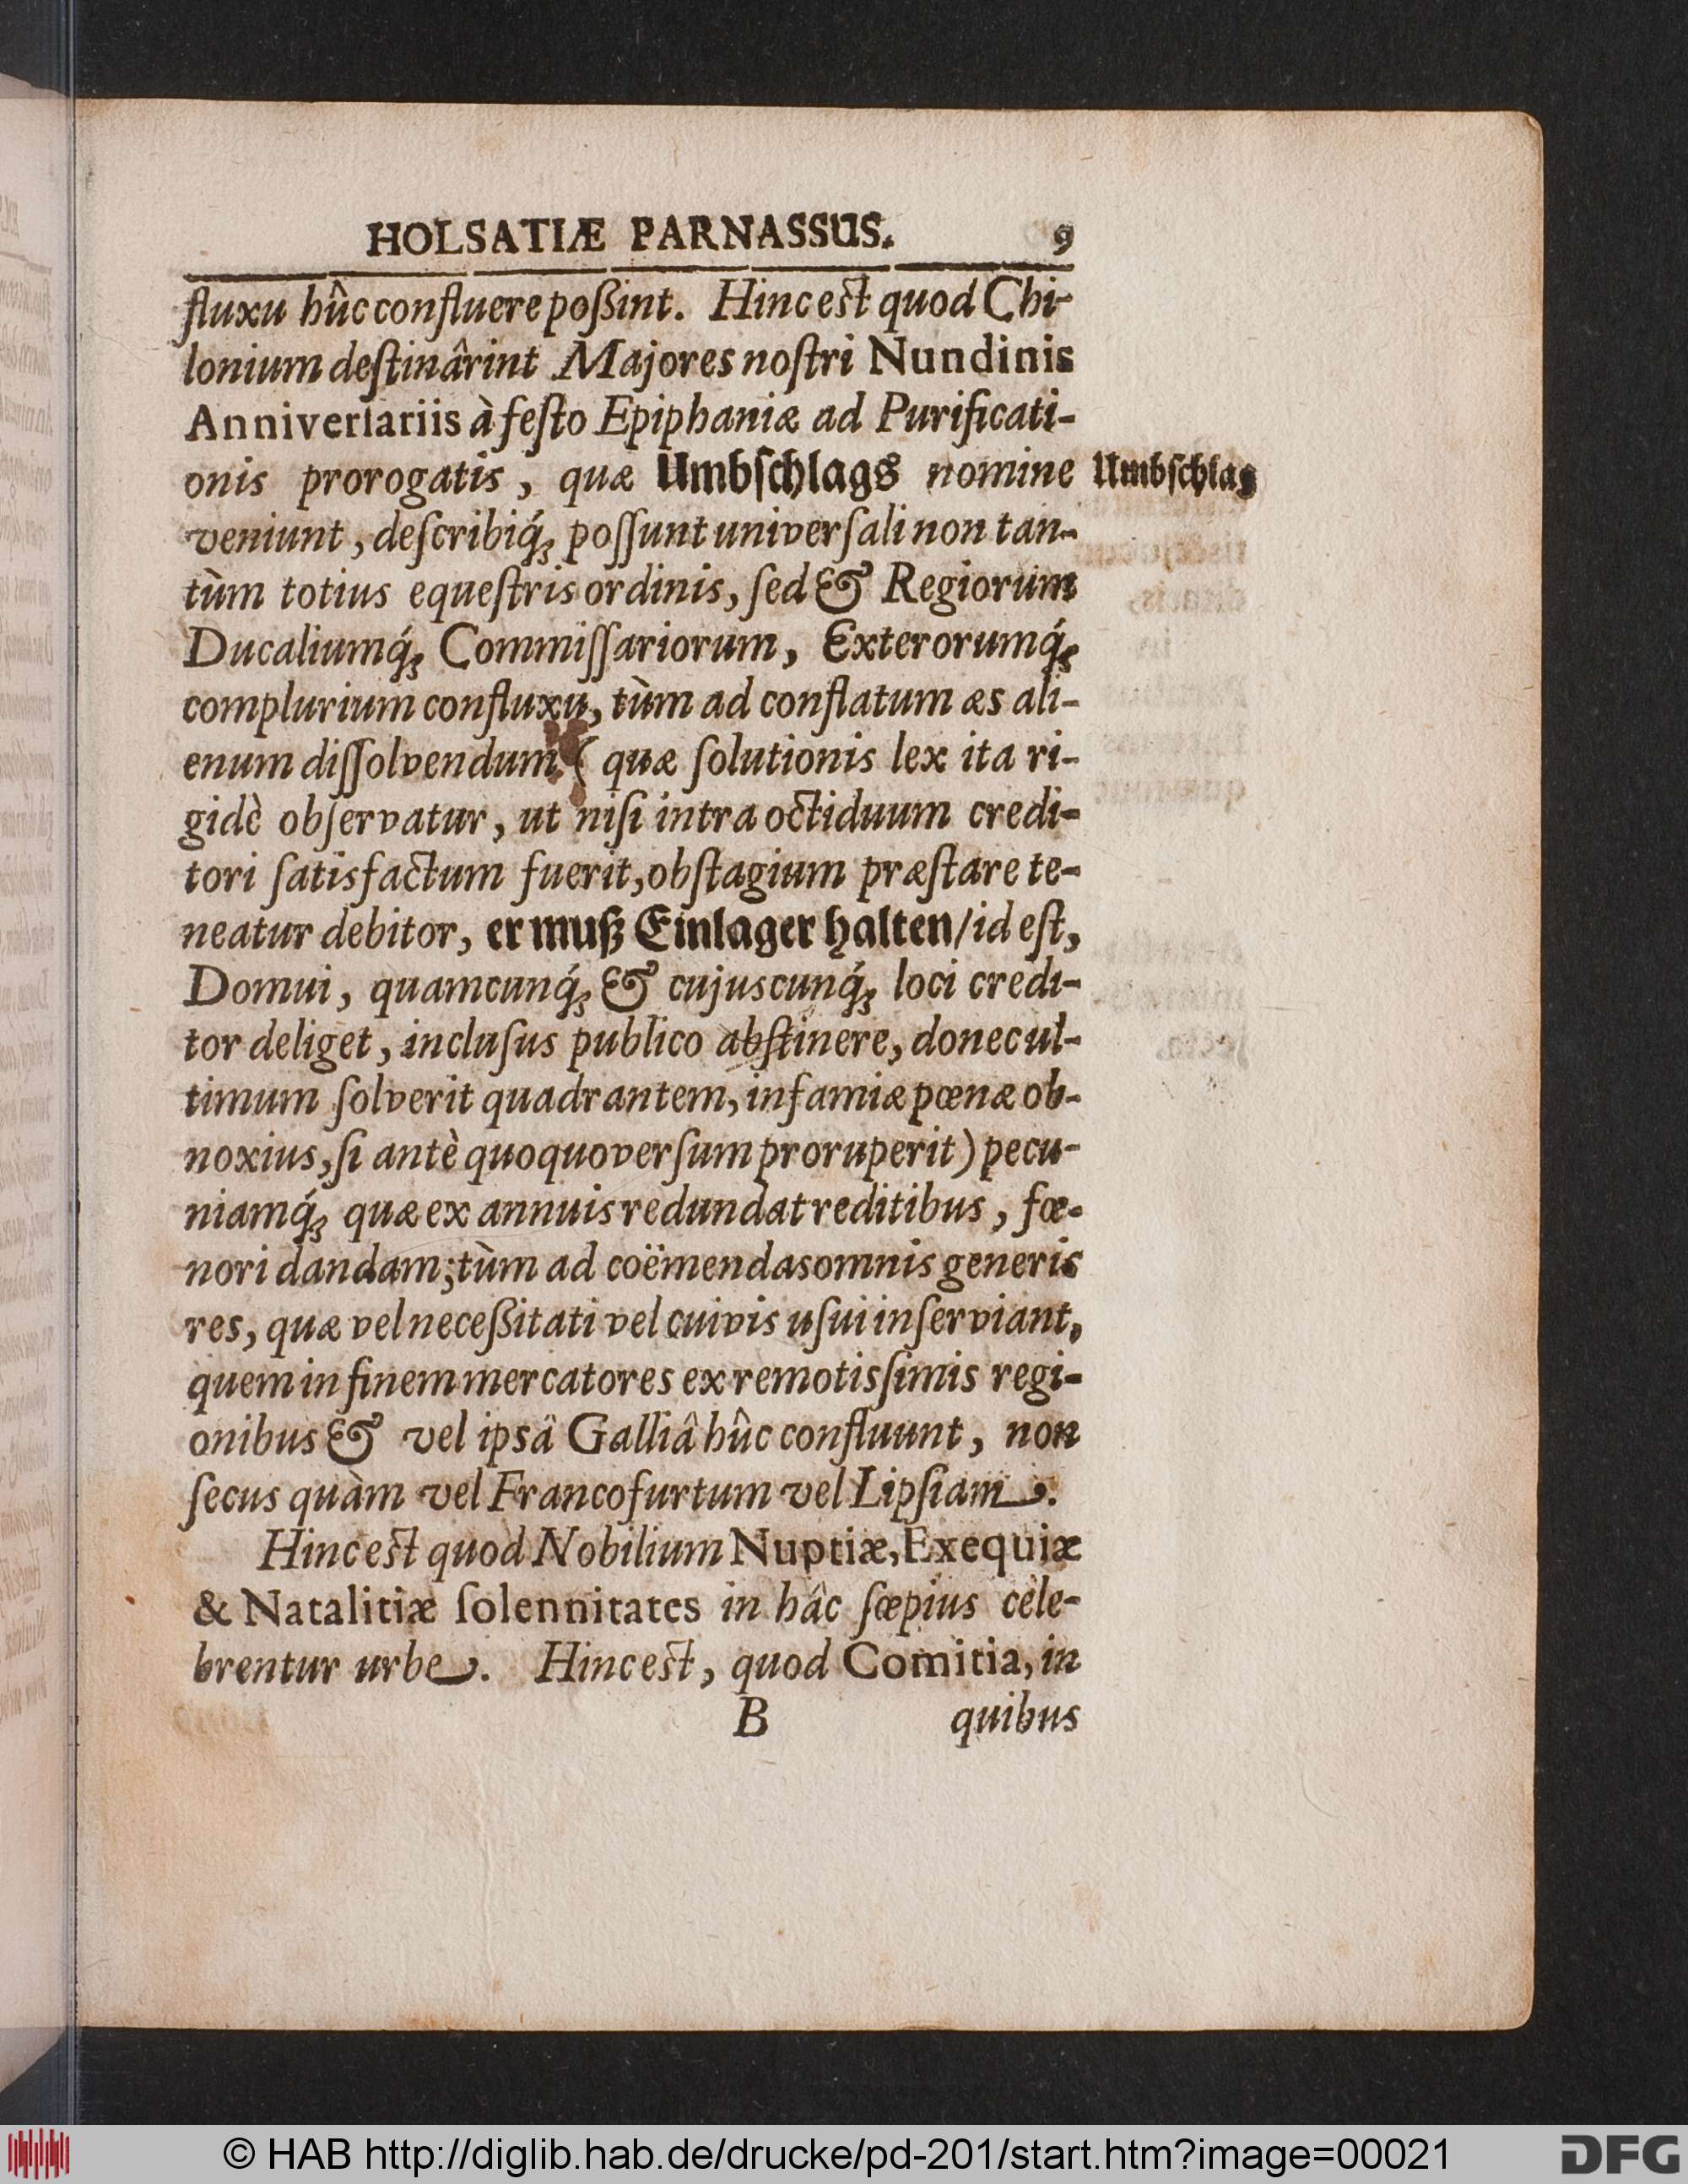 HOLSATIÆ PARNASSUS. 9
fluxu hûc confluere poßint. Hinc est quod Chi-
lonium deſtinârint Majores noſtri Nundinis
Anniverſariis à feſto Epiphaniæ ad Purificati-
onis prorogatis, quæ Umbſchlags nomine
Umbſchlag
veniunt, deſcribiq́ꝫ poſſunt univerſali non tan-
tùm totius equeſtris ordinis, ſed & Regiorum
Ducaliumq́ꝫ Commiſſariorum, Exterorumq́ꝫ
complurium confluxu, tùm ad conflatum æs ali-
enum diſſolvendum (quæ ſolutionis lex ita ri-
gidè obſervatur, ut niſi intra octiduum credi-
tori ſatisfactum fuerit, obſtagium præſtare te-
neatur debitor, er muß Einlager halten/ id eſt,
Domui, quamcunq́ꝫ & cujuscunq́ꝫ loci credi-
tor deliget, incluſus publico abſtinere, donec ul-
timum ſolverit quadrantem, infamiæ pœnæ ob-
noxius, ſi antè quoquoverſum proruperit) pecu-
niamq́ꝫ quæ ex annuis redundat reditibus, fœ-
nori dandam; tùm ad coëmendas omnis generis
res, quæ vel neceßitati vel cuivis uſui inſerviant,
quem in finem mercatores ex remotisſimis regi-
onibus & vel ipsâ Galliâ hûc confluunt, non
ſecus quàm vel Francofurtum vel Lipſiam.
Hinc est quod Nobilium Nuptiæ, Exequiæ
& Natalitiæ ſolennitates in hâc ſœpius cele-
brentur urbe. Hinc est, quod Comitia, in
B quibus
© HAB http://diglib.hab.de/drucke/pd-201/start.htm?image=00021
DFG